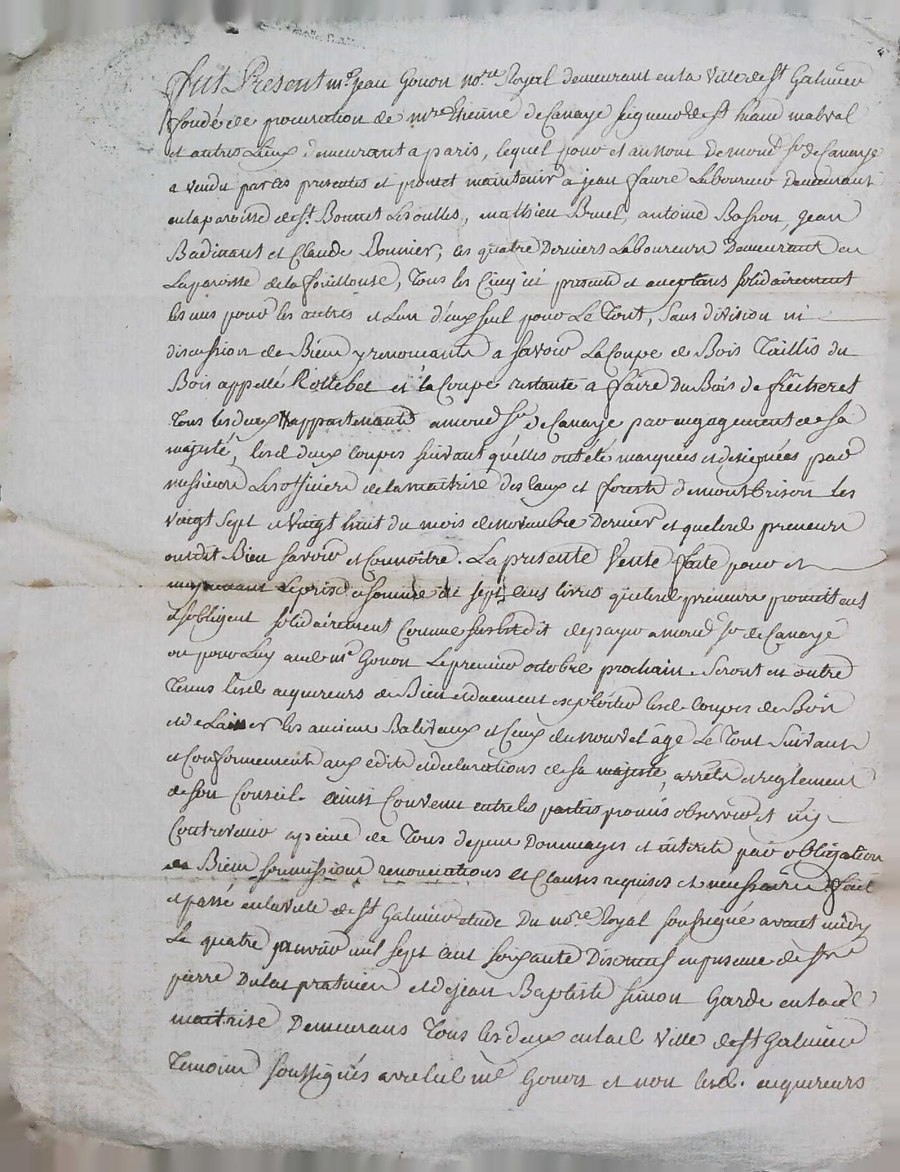 fut Present me jean Gonon nore Royal demeurant en la Ville de St Galmier
fondé de procuration de mre Etienne de Canaye seigneur de St haand malval
et autres Lieux demeurant a paris, lequel pour et au nom de mond. Sr de Canaye
a vendu par ces presentes et promet maintenir a jean faure Laboureur demeurant
en la paroisse de St. Bonnet Les oulles, mathieu Bruel, antoine Basson, jean
Badinand et Claude Bonnier, les quatre Derniers Laboureurs Demeurant en
La paroisse de la fouillouse, Tous les Cinq ici presents et acceptans solidairement
les uns pour les autres et L'un d'eux seul pour Le Tout, sans division ni
discussion de Biens y renonceants a savoir La Coupe de Bois Taillis du
Bois appellé Rottebet et la Coupe restante a faire Du Bois de
Tous les deux appartenants a mond. Sr de Canaye par engagement de sa
majesté, lesd. deux Coupes suivant qu'elles ont été marquées et designées par
messieurs Les officiers de la maitrise des Eaux et forets de montbrison les
vingt sept et vingt huit du mois de novembre Dernier et que lesd. preneurs
ont dit Bien savoir et Connoitre. La presente Vente faite pour et
moyennant Le prix et somme de sept Cens livres que lesd. preneurs promettent
et s'obligent solidairement Comme susd. dit de payer a mond. Sr de Canaye
ou pour Luy aud. me Gonon Le premier octobre prochain. Seront en outre
Tenus lesd. acquereurs de Bien et duement exploiter lesd. Coupes de Bois
et de Laisser les anciens Baliveaux et Ceux du nouvel age Le Tout suivant
et Conformement aux edits et declarations de sa majesté, arrêts et reglement
de son Conseil. ainsi Convenu entre les parties promis observer et n'y
Contrevenir a peine de Tous depens Dommages et interets par obligation
de Biens soumissions renonciations et Clauses requises et necessaires fait
et passé en la ville de St Galmier etude Du nore Royal soussigné avant midy
Le quatre janvier mil sept cent soixante Dixneuf en presence de Sr
pierre praticien et de jean Baptiste simon Garde en lad.
maitrise Demeurans Tous les deux en lad. Ville de St Galmier
Temoins soussignés avec led. me Gonon et non lesd. acquereurs